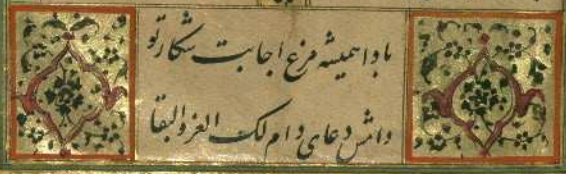 بادا همیشه مرغ اجابت شکار تو
دانش دعای دام لک العز والبقا